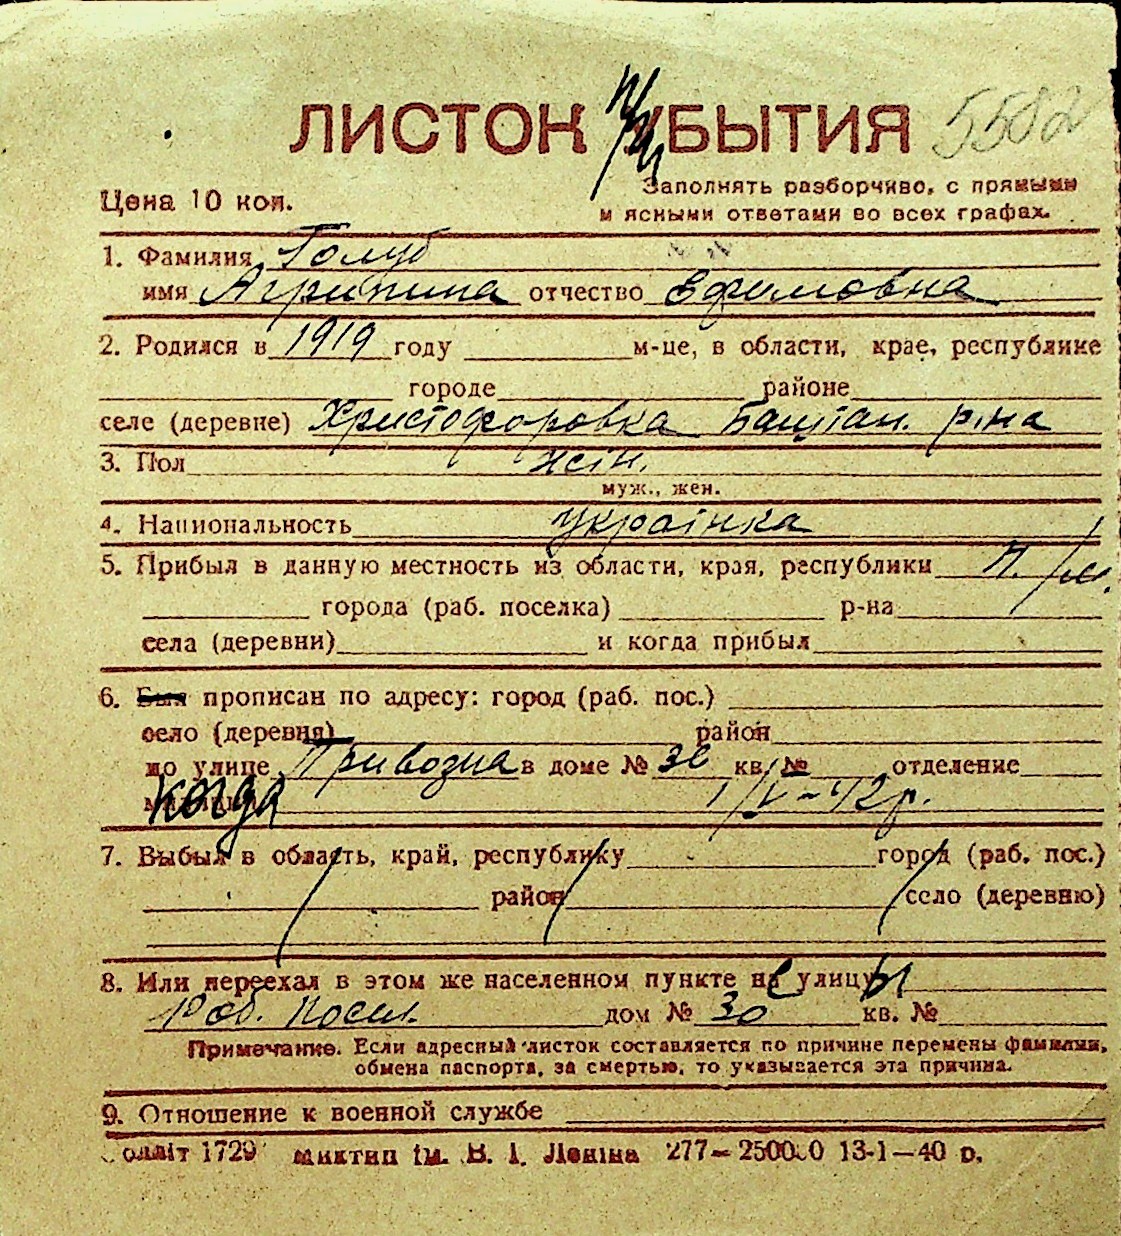 ЛИСТОК УБЫТИЯ 5582
Цена 10 коп.
Заполнять разборчиво, с прямыми
и ясными ответами во всех графах.
1. Фамилия Голуб
имя Агрипина отчество Ефимовна
2. Родился в 1919 году м-це, в области, крае, республике
городе районе
селе (деревне) Христофоровка Баштан. р-на
3. Пол жін.
муж., жен.
4. Национальность українка
5. Прибыл в данную местность из области, края, республики
города (раб. поселка) р-на
села (деревни) и когда прибыл
6. Был прописан по адресу: город (раб. пос.)
село (деревня) район
по улице Привозна в доме № 30 кв. № отделение
когда 1/V-42р.
7. Выбыл в область, край, республику город (раб. пос.)
район село (деревню)
8. Или переехал в этом же населенном пункте на улицы
Роб. Посел. дом № 30 кв. №
Примечание. Если адресный листок составляется по причине перемены фамилии,
обмена паспорта, за смертью, то указывается эта причина.
9. Отношение к военной службе
олліт 1729 ім. В. І. Леніна 277—250000 13-1—40 р.